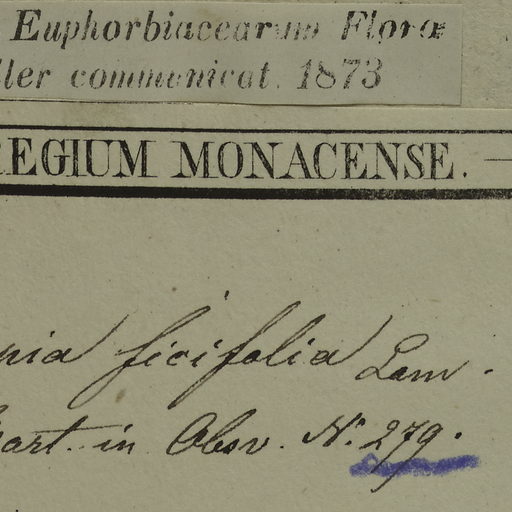 Euphorbiacearum Floræ
ller communicat. 1873
REGIUM MONACENSE.
nia ficifolia Lam.
art. in Obsv. N: 279.